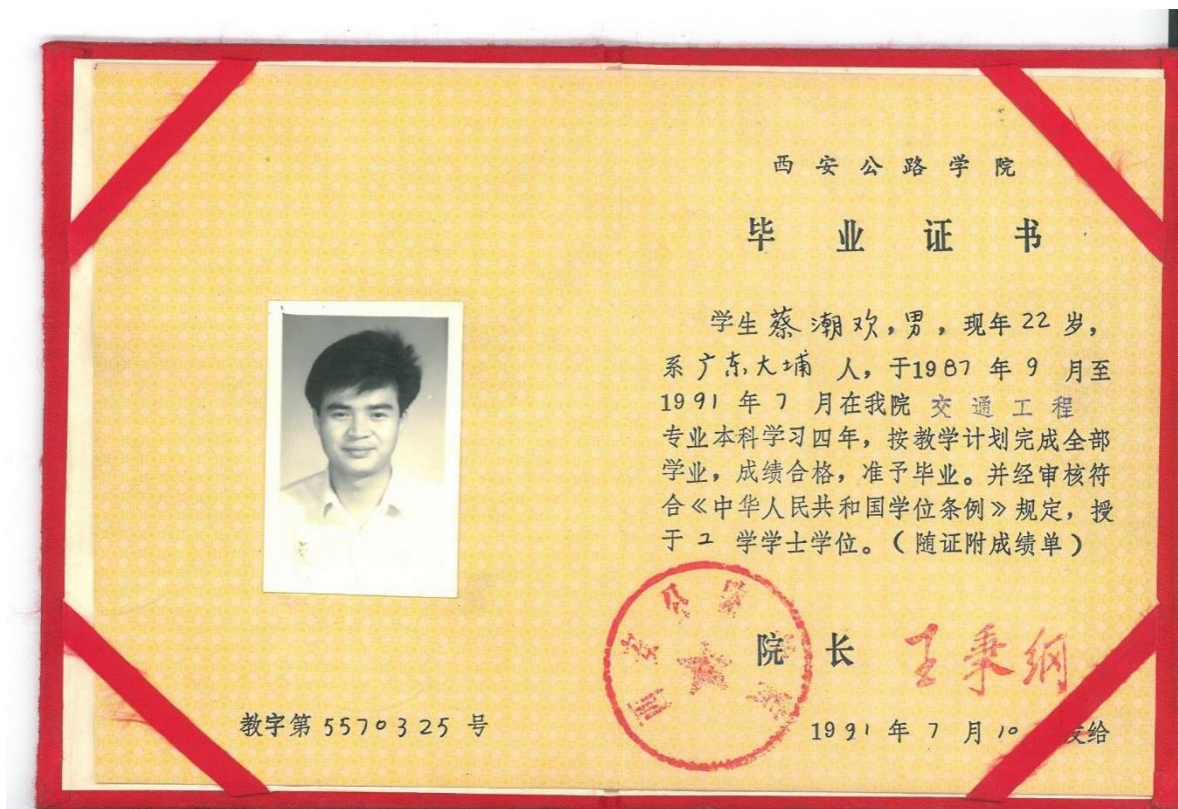 西安公路学院
毕业证书
学生蔡潮欢,男,现年22岁,
系广东大埔 人,于1987年9月至
1991年7月在我院 交通工程
专业本科学习四年,按教学计划完成全部
学业,成绩合格,准予毕业。并经审核符
合《中华人民共和国学位条例》规定,授
于工 学学士学位。(随证附成绩单)
西安公路学院
院长 王秉纲
教字第5570325号
1991年7月10 发给